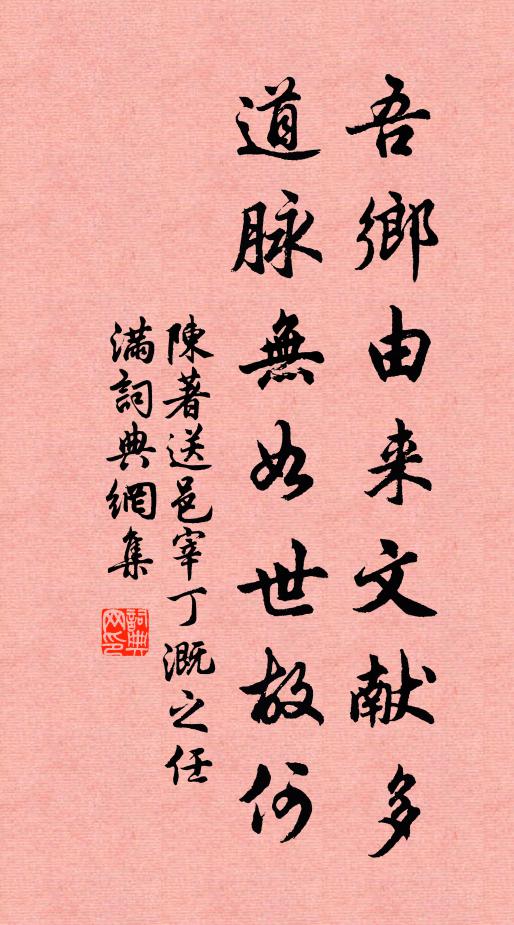 吾鄉由来文献多
道脉無如世故何
陳著送邑宰丁溉之任
满詞典網集
詞典网印